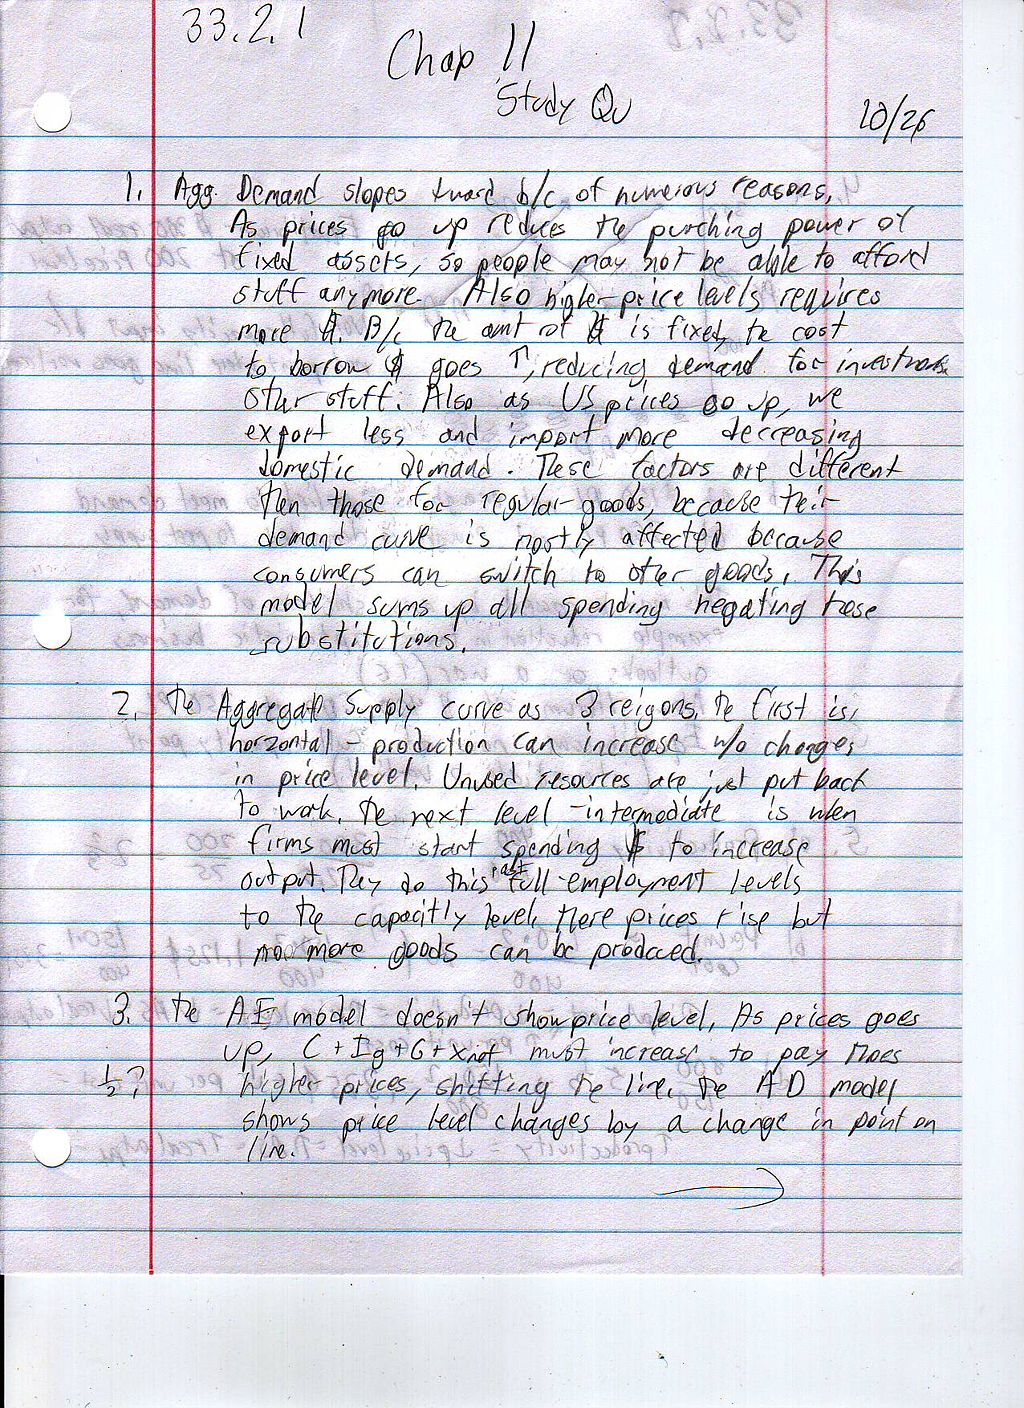 33.2.1
Chap 11
Study Qu
10/26
1. Agg. Demand slopes dward b/c of numerous reasons,
As prices go up reduces the purching power of
fixed assets, so people may not be able to afford
stuff anymore. Also higher price levels requires
more $. B/c the amt of $ is fixed, the cost
to borrow $ goes ↑, reducing demand for investment
other stuff. Also as US prices go up, we
export less and import more decreasing
domestic demand. These factors are different
then those for regular goods, because their
demand curve is mostly affected because
consumers can switch to other goods, This
model sums up all spending negating those
substitutions.
2. The Aggregate Supply curve as 3 reigons, the first is,
horzontal - production can increase w/o changes
in price level. Unused resources are just put back
to work. The next level - intermediate is when
firms must start spending $ to increase
output. They do this past full-employment levels
to the capacitly level, there prices rise but
no more goods can be produced.
3. The AE model doesn't show price level, As prices goes
up, C + Ig + G + Xnet must increase to pay thoes
1/2? higher prices, shifting the line, the AD model
shows price level changes by a change in point on
line.